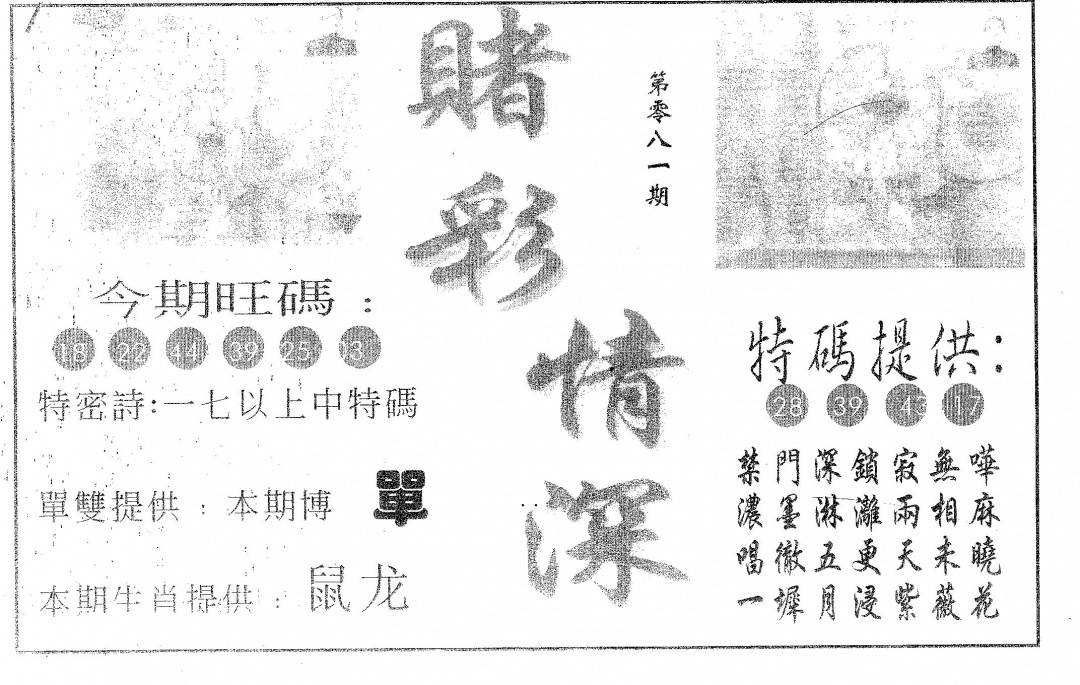 賭彩情深
第零八一期
今期旺碼：
18 22 44 39 25
特密詩:一七以上中特碼
單雙提供：本期博 單
本期生肖提供：鼠龙
特碼提供：
28 39 43 17
禁門深鎖寂無嘩
濃墨淋灕兩相麻
唱徹五更天未曉
一墀月浸紫薇花